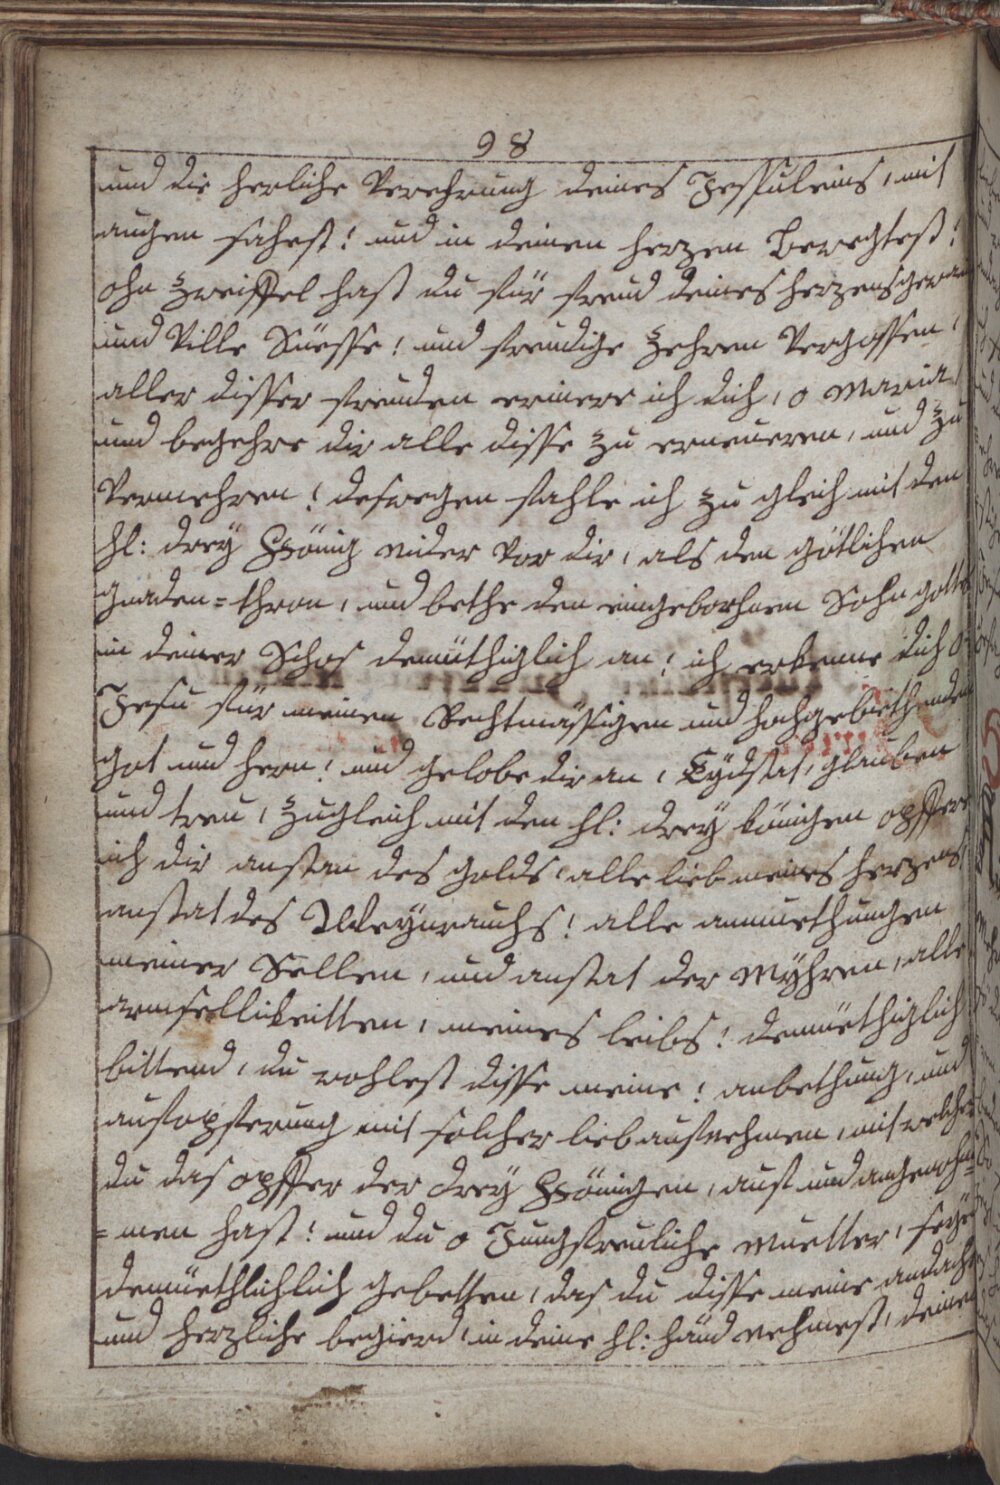 98
und die herliche Verehrung deines Jessuleins, mit
augen sahest! und in deinen herzen bewegtest!
ohn zweiffel hast du für freud deines herzens
und Ville Süesse! und freudige zehren Vergossen!
aller disser freuden erinere ich dich, o Maria
und begehre dir alle disse zu erneueren, und zu
Vermehren! deswegen fahle ich zu gleich mit den
hl: drey König nider vor dir, als den götlichen
gnaden=thron, und bethe den eingebohrnen Sohn gottes
in deiner Schos demüthiglich an! ich erkenne dich o
Jesu für meinen Rechtmässigen und hochgebiethenden
got und hern! und gelobe dir an, Eydstat, glauben
und treu, zugleich mit den hl: drey königen opffere
ich dir anstan des golds alle lieb meines herzens!
anstat des Weyrauchs! alle anmuethungen
meiner Sellen, und anstat der Myhren, alle
armsellickeitten, meines leibs! demüethiglich
bittend, du wohlest disse meine! anbethung, und
aufopferung mit solcher lieb aufnehmen, mit welcher
du das opffer der drey Königen, auf und angenohm=
=men hast! und du o Jungfreuliche Muetter, seye
demüethlichlich gebetten, das du disse meine andacht
und herzliche begierd, in deine hl: händ nehmest, deinen